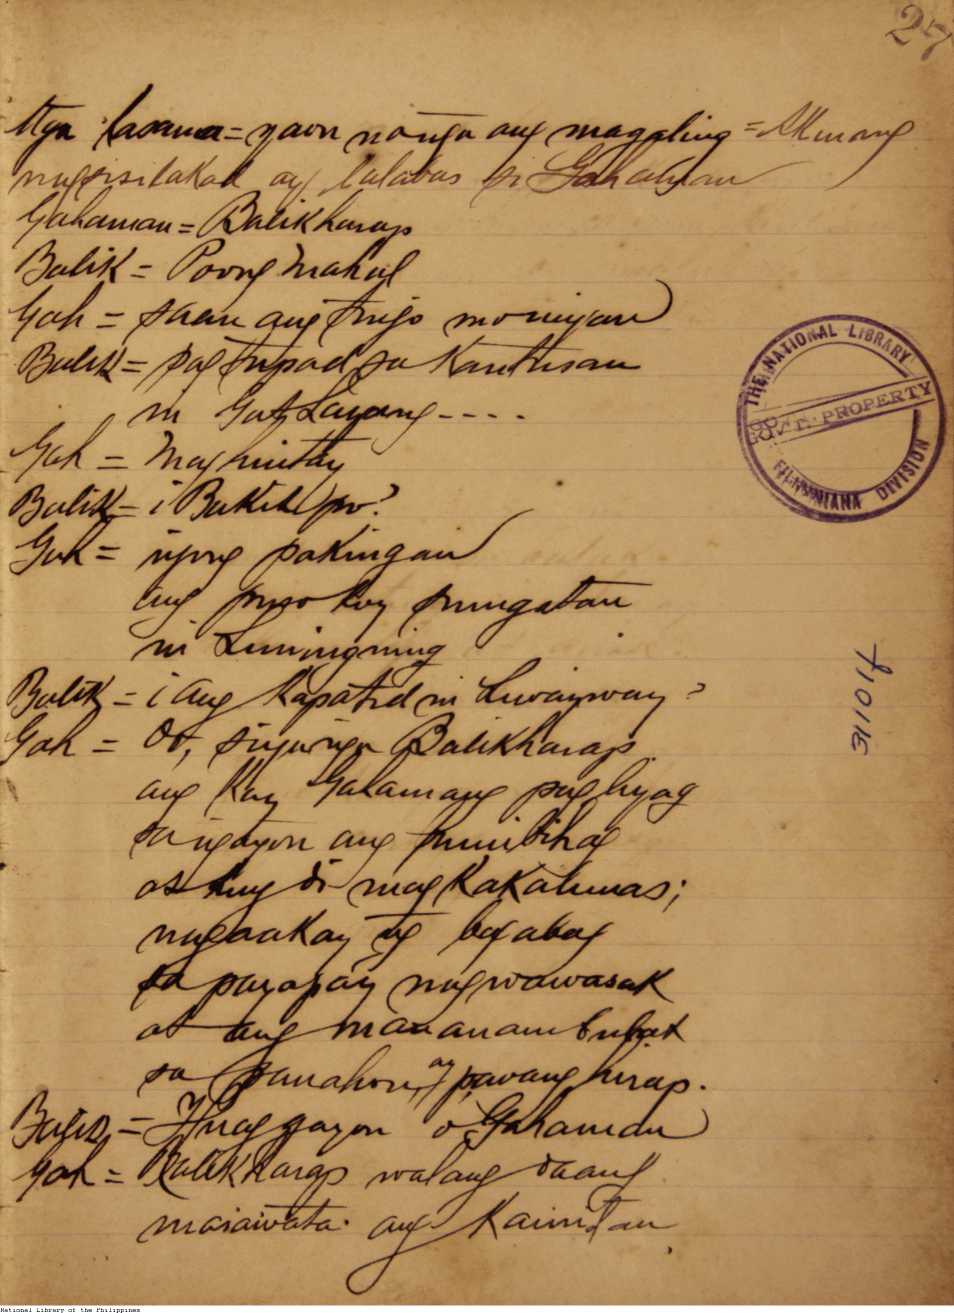 27
Mga kasama = yaon na nga ang magaling = Akmang
nagsisilakad ay lalabas si Gahaman
Gahaman = Balikharap
Balik = Poong Mahal
Gah = saan ang tungo mo niyan
Balik = pag tupad sa Kautusan
ni Gat Layang - - - -
Gah = Maghintay
Balik = ¿Bakit po?
Gah = iyong pakingan
ang puso koy sinugatan
ni Luningning
Balik = ¿ang kapatid ni Liwayway?
Gah = Oo, siya nga Balikharap
ang kay Gahamang pag liyag
sa ngayon ang bumibihag
at ang di magkakalunas;
nagaakay ng bagabag
sa payapay nagwawasak
at ang mananambulat
sa panahon, ay pawang hirap.
Balik = Huag gayon o Gahaman
Gah = Balikharap walang daang
maiawata ang Kariktan
THE NATIONAL LIBRARY
GOV'T. PROPERTY
FILIPINIANA DIVISION
31101f
National Library of the Philippines